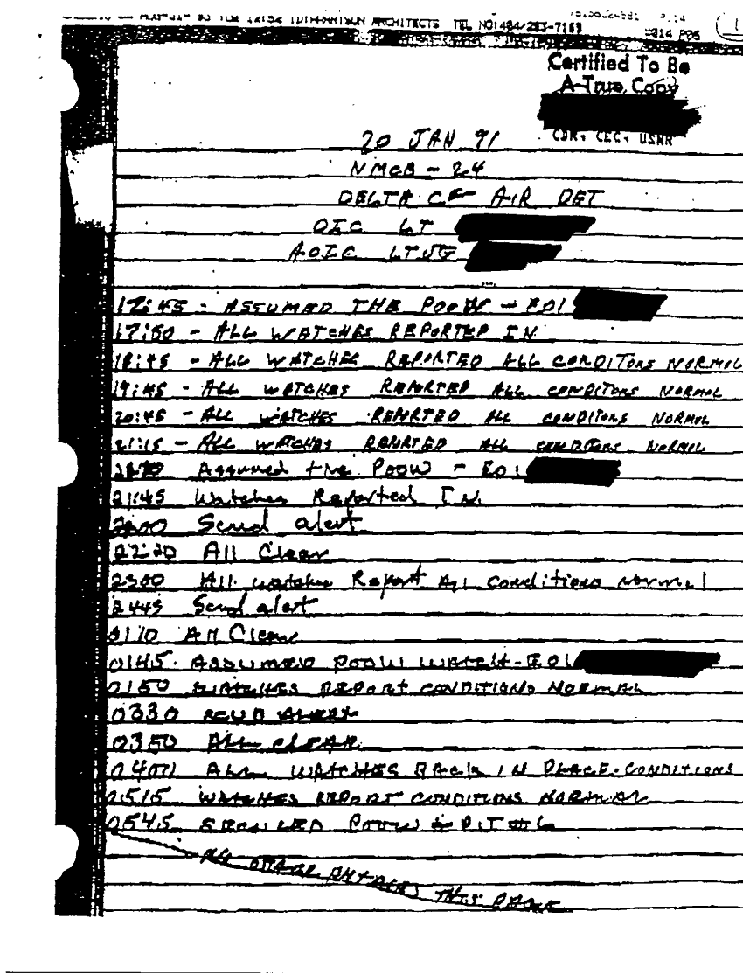 ARCHITECTS TEL NO: 484/283-7169
Certified To Be
A True Copy
CDR, CEC, USNR
20 JAN 91
NMCB - 24
DELTA CF AIR DET
OIC LT
AOIC LTJG
17:45 - ASSUMED THE POOW - EO1
17:50 - ALL WATCHES REPORTED IN
18:45 - ALL WATCHES REPORTED ALL CONDITONS NORMAL
19:45 - ALL WATCHES REPORTED ALL CONDITONS NORMAL
20:45 - ALL WATCHES REPORTED ALL CONDITONS NORMAL
21:15 - ALL WATCHES REPORTED ALL CONDITONS NORMAL
Assumed the POOW - EO1
21:45 Watches Reported In.
Scud alert
2220 All Clear
2300 All watches Report All conditions normal
2445 Scud alert
0110 All Clear
0145. ASSUMED POOW WATCH - EO1
0150 WATCHES REPORT CONDITIONS NORMAL
0330 SCUD ALERT
0350 ALL CLEAR
0400 ALL WATCHES BACK IN PLACE. CONDITIONS
0515 WATCHES REPORT CONDITIONS NORMAL
0545 POOW
THIS PAGE